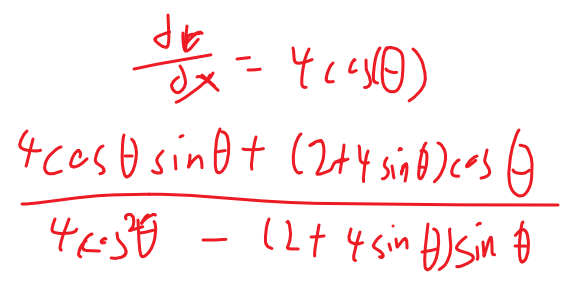 dr/dx = 4cos(θ)
4cosθsinθ + (2+4sinθ)cosθ
4cos²θ - (2+4sinθ)sinθ